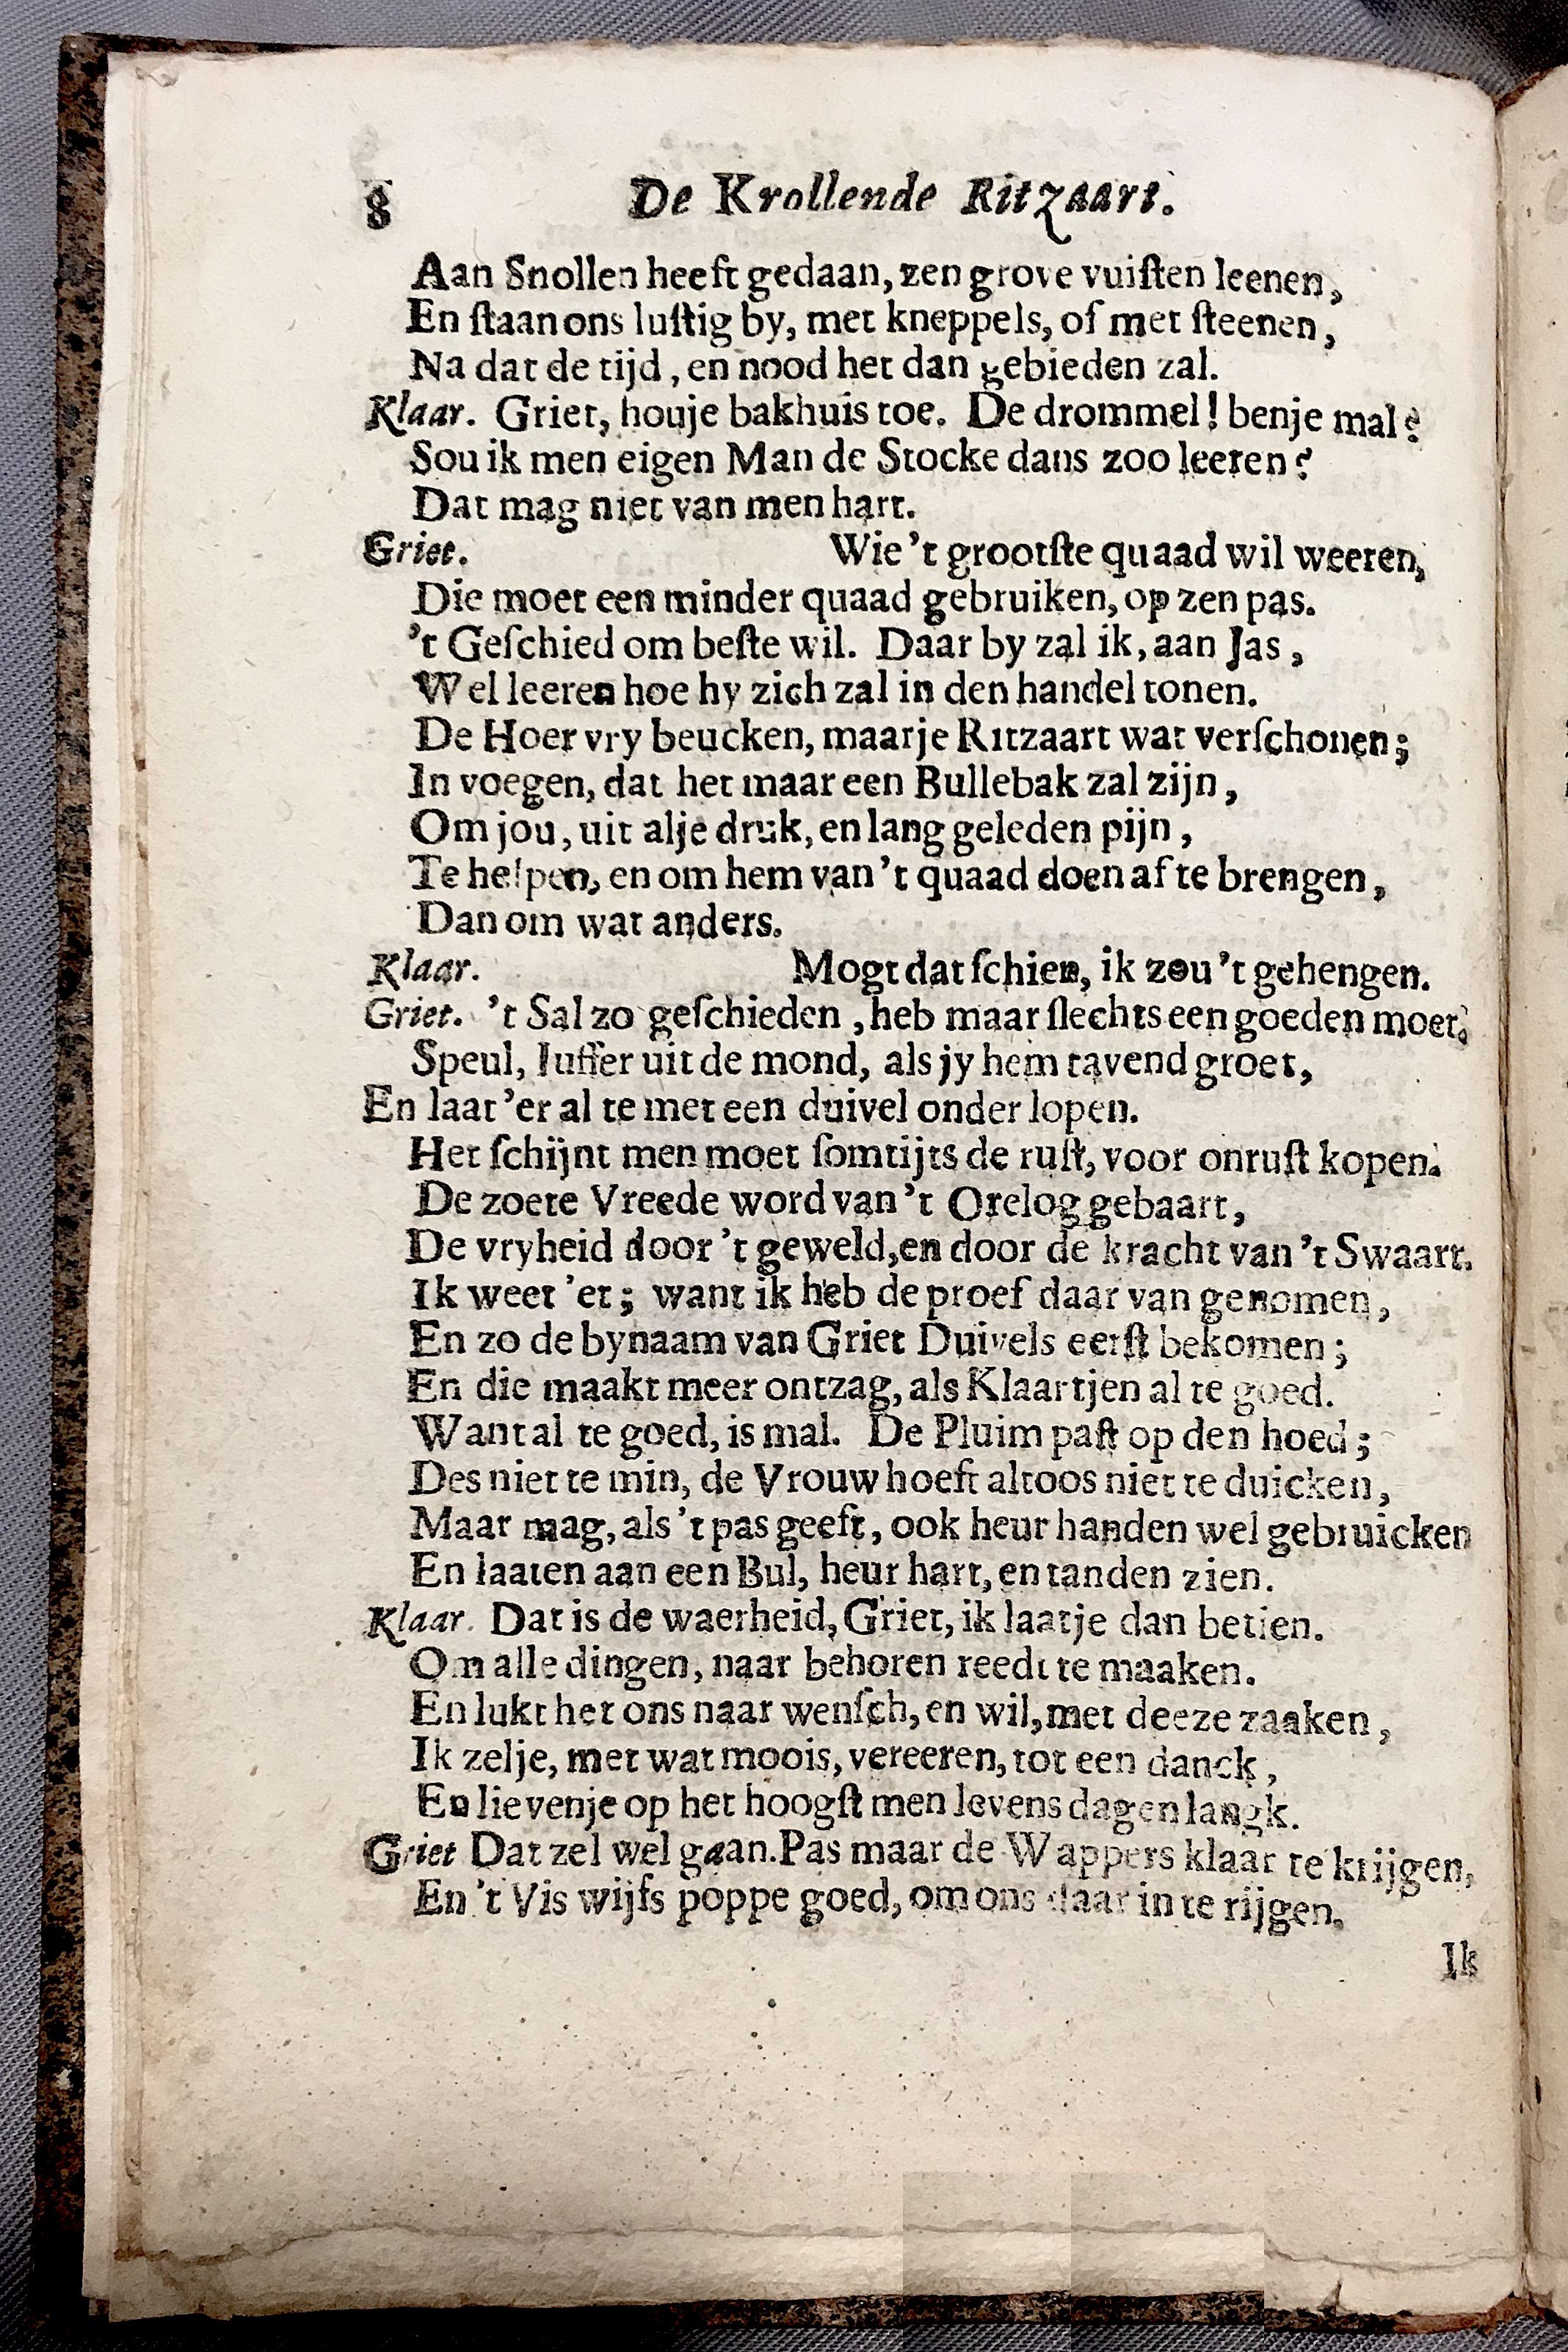 8 De Krollende Ritzaart.
Aan Snollen heeft gedaan, zen grove vuiſten leenen,
En ſtaan ons luſtig by, met kneppels, of met ſteenen,
Na dat de tijd, en nood het dan gebieden zal.
Klaar. Griet, houje bakhuis toe. De drommel! benje mal?
Sou ik men eigen Man de Stocke dans zoo leeren?
Dat mag niet van men hart.
Griet. Wie 't grootſte quaad wil weeren,
Die moet een minder quaad gebruiken, op zen pas.
't Geſchied om beſte wil. Daar by zal ik, aan Jas,
Wel leeren hoe hy zich zal in den handel tonen.
De Hoer vry beucken, maar je Ritzaart wat verſchonen;
In voegen, dat het maar een Bullebak zal zijn,
Om jou, uit al je druk, en lang geleden pijn,
Te helpen, en om hem van 't quaad doen af te brengen,
Dan om wat anders.
Klaar. Mogt dat ſchien, ik zou 't gehengen.
Griet. 't Sal zo geſchieden, heb maar ſlechts een goeden moet.
Speul, Iuffer uit de mond, als jy hem tavend groet,
En laat 'er al te met een duivel onder lopen.
Het ſchijnt men moet ſomtijts de ruſt, voor onruſt kopen.
De zoete Vreede word van 't Orelog gebaart,
De vryheid door 't geweld, en door de kracht van 't Swaart.
Ik weet 'et; want ik heb de proef daar van genomen,
En zo de bynaam van Griet Duivels eerſt bekomen;
En die maakt meer ontzag, als Klaartjen al te goed.
Want al te goed, is mal. De Pluim paſt op den hoed;
Des niet te min, de Vrouw hoeft altoos niet te duicken,
Maar mag, als 't pas geeft, ook heur handen wel gebruicken
En laaten aan een Bul, heur hart, en tanden zien.
Klaar. Dat is de waerheid, Griet, ik laat je dan betien.
Om alle dingen, naar behoren reedt te maaken.
En lukt het ons naar wenſch, en wil, met deeze zaaken,
Ik zelje, met wat moois, vereeren, tot een danck,
En lievenje op het hoogſt men levens dagen langk.
Griet Dat zel wel gaan. Pas maar de Wappers klaar te krijgen,
En 't Vis wijfs poppe goed, om ons daar in te rijgen.
Ik